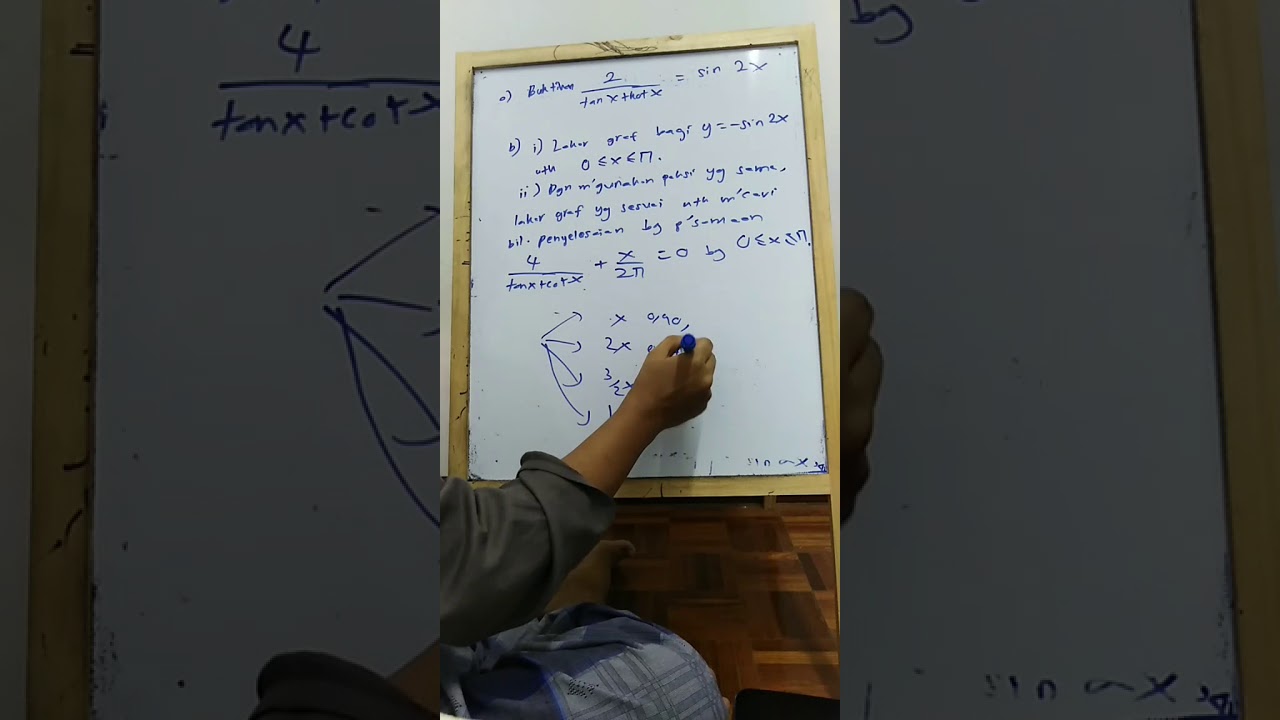 a) Buktikan 2/(tan x + kot x) = sin 2x
b) i) Lakar graf bagi y = -sin 2x
utk 0 ≤ x ≤ π.
ii) Dgn m'gunakan paksi yg sama,
lakar graf yg sesuai utk m'cari
bil. penyelesaian bg p'samaan
4/(tan x + cot x) + x/2π = 0 bg 0 ≤ x ≤ π.
x 0, 90,
2x
sin ax